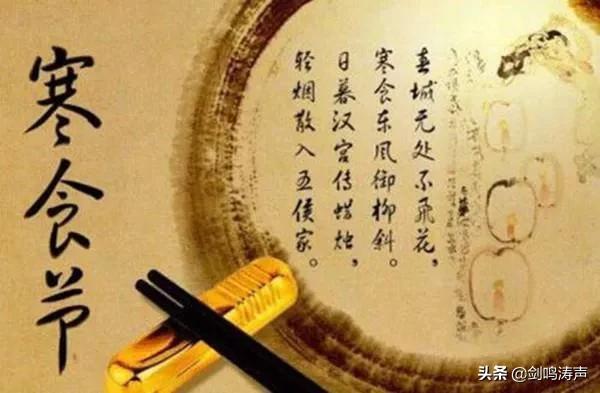 寒食节
春城无处不飞花，
寒食东风御柳斜。
日暮汉宫传蜡烛，
轻烟散入五侯家。
头条 @剑鸣涛声